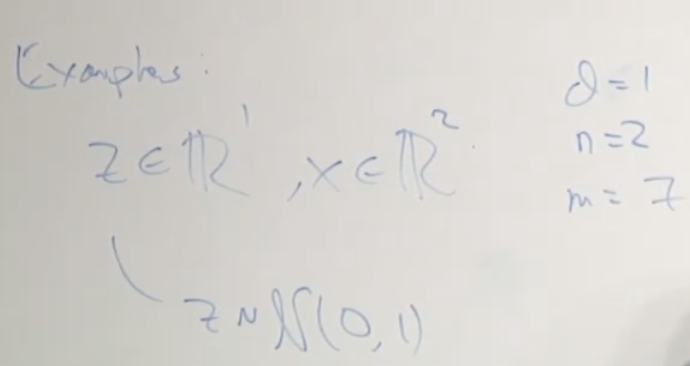 Examples:
z ∈ ℝ¹, x ∈ ℝ²
z ~ N(0, 1)
d = 1
n = 2
m = 7